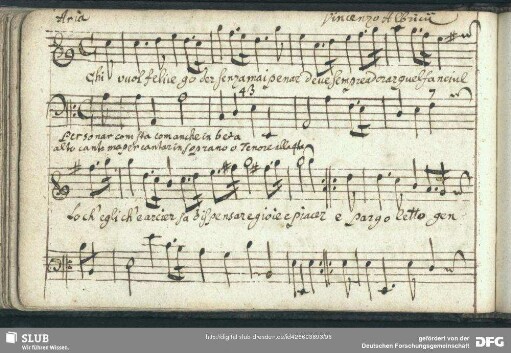 Aria Vincenzo Albricii
Chi vuol felice goder senza mai penar deve sempre adorar quel fanciul
4 3 7
Per sonar com sta comanche in beta
alto canto mà per cantar in soprano o Tenore alla 4ta
lo ch'egli ch'e arcier sa dispensare gioie e piacer e pargoletto gen
SLUB
Wir führen Wissen.
gefördert von der
Deutschen Forschungsgemeinschaft
DFG